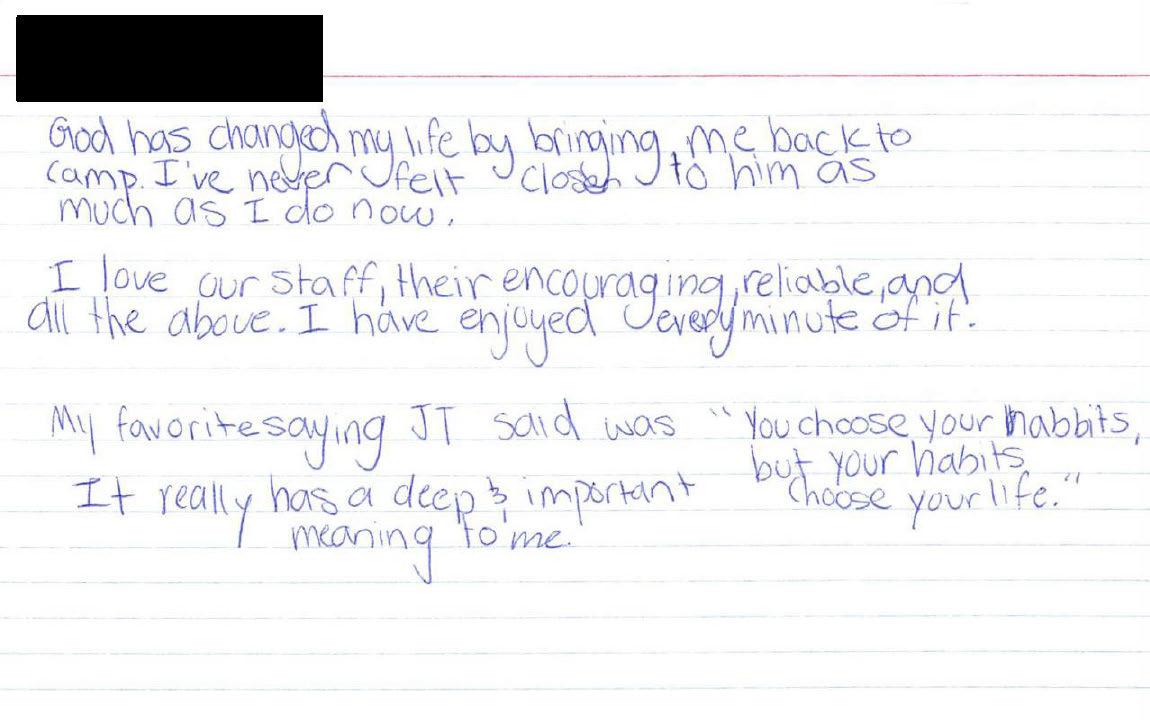 God has changed my life by bringing me back to
camp. I've never felt close to him as
much as I do now.
I love our staff, their encouraging, reliable, and
all the above. I have enjoyed every minute of it.
My favorite saying JT said was "You choose your habbits,
but your habits
choose your life."
It really has a deep & important
meaning to me.